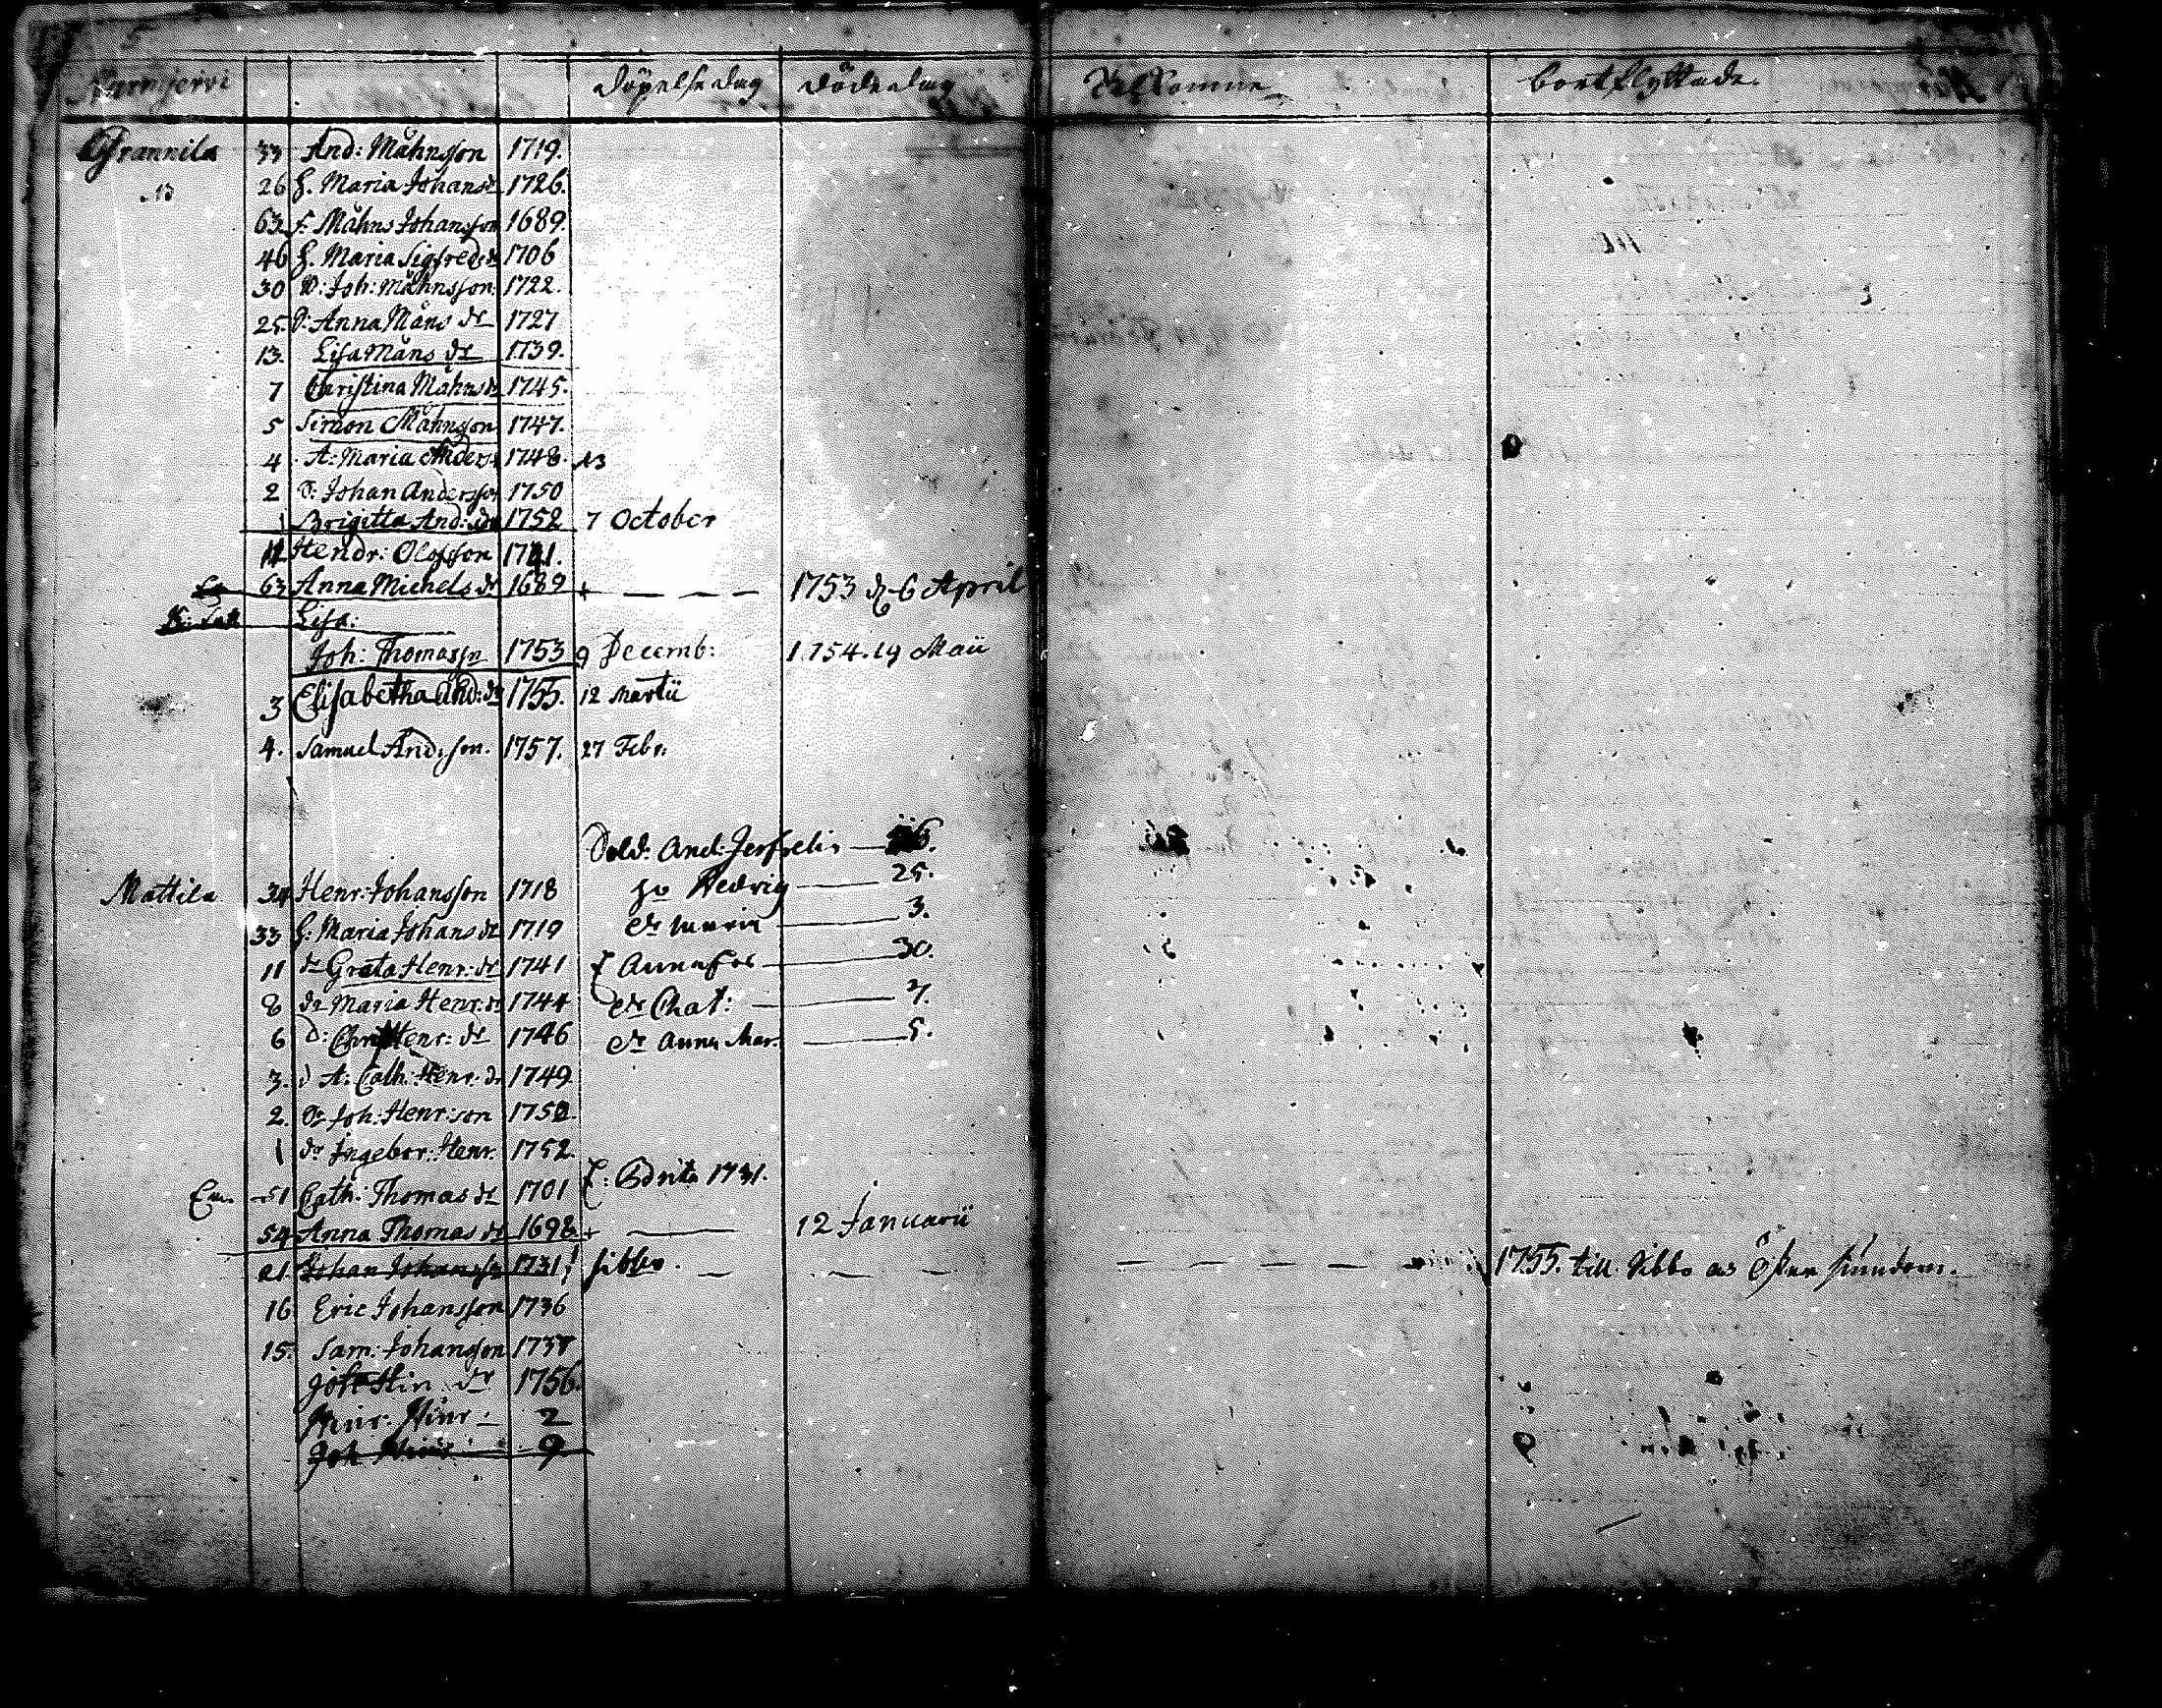 5
Nurmjervi döpelsedag dödedag Tilkomne bortflyttade.
Grannila 33 And: Måhnsson 1719.
26 H. Maria Johansdr 1726.
63 F. Måhns Johansson 1689.
46 H. Maria Sigfredsdr 1706
30 D: Joh: Måhnsson 1722.
25. D. Anna Måns dr 1727
13. Lisa Måns dr 1739.
7 Christina Måhnsdr 1745.
5 Simon Måhnsson 1747.
4 A: Maria Anders 1748. 13
2 D: Johan Andersson 1750
1 Brigitta And: dr 1752 7 October
11 Hendr: Olofsson 1741.
63 Anna Michels dr 1689 + 1753 d. 6 April
Lisa:
Joh: Thomassn 1753 9 Decemb: 1754. 19 Maii
3 Elisabetha And: dr 1755. 12 Martii
4. Samuel And: son. 1757. 27 Febr.
Sold. And: 26.
Mattila 34 Henr: Johansson 1718 hu Hedvig 25.
33 H: Maria Johans dr 1719 dr Maria 3.
11 dr Greta Henr: dr 1741 30.
8 dr Maria Henr: dr 1744 dr Chat: 7.
6 D: Chr: Henr: dr 1746 dr Anna Mar. 5.
3. d A: Cath: Henr: dr 1749.
2. Dr Joh: Henr: son 1750.
1 dr Ingebor: Henr. 1752.
Enk. 51 Cath: Thomas dr 1701 E: Brita 1731.
54 Anna Thomas dr 1698. + 12 Januarii
21. Johan Johansson 1731 Sibbo. 1755. till Sibbo as Öster sundom.
16 Eric Johansson 1736
15. Sam: Johansson 1737
Joh Hin dr 1756.
Hinr: Hinr 2
Joh Hinr 9